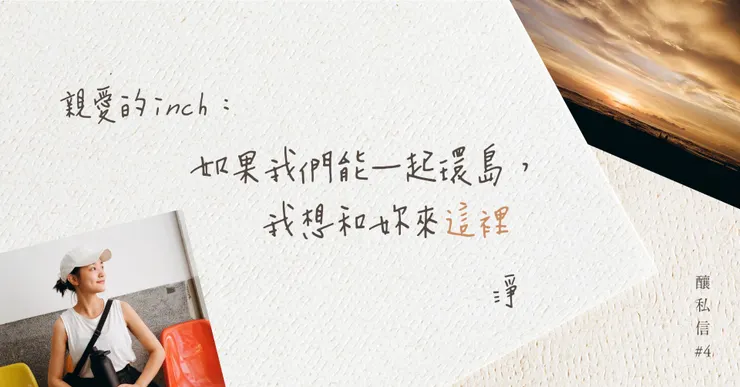 親愛的inch：
如果我們能一起環島，
我想和妳來這裡
淨
釀私信
#4